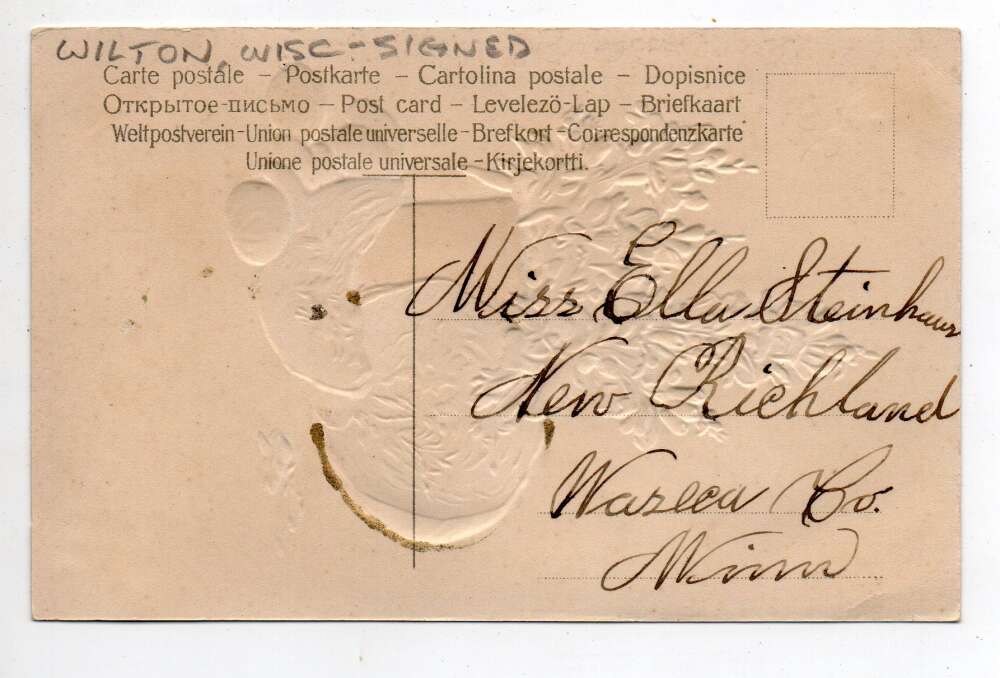 WILTON, WISC-SIGNED
Carte postale – Postkarte – Cartolina postale – Dopisnice
Открытое-письмо – Post card – Levelezö-Lap – Briefkaart
Weltpostverein-Union postale universelle-Brefkort-Correspondenzkarte
Unione postale universale -Kirjekortti.
Miss Ella Steinhaus
New Richland
Waseca Co.
Minn